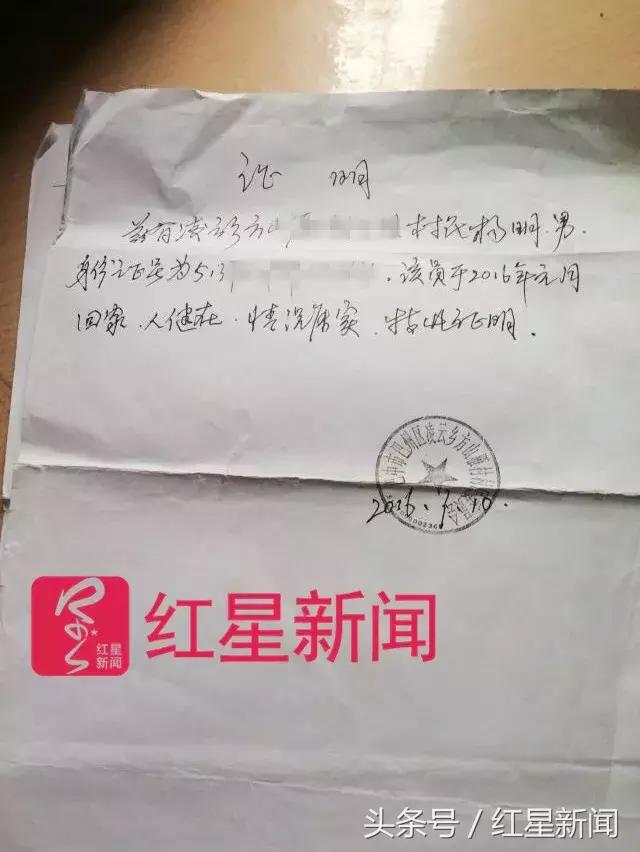 证 明
兹有凌云乡方山 村民杨明.男.
身份证号为513 .该员于2016年元月
回家.人健在.情况属实.特此证明.
巴中市巴州区凌云乡方山雁村村
2016. .10.
红星新闻
红星
新闻
头条号 / 红星新闻